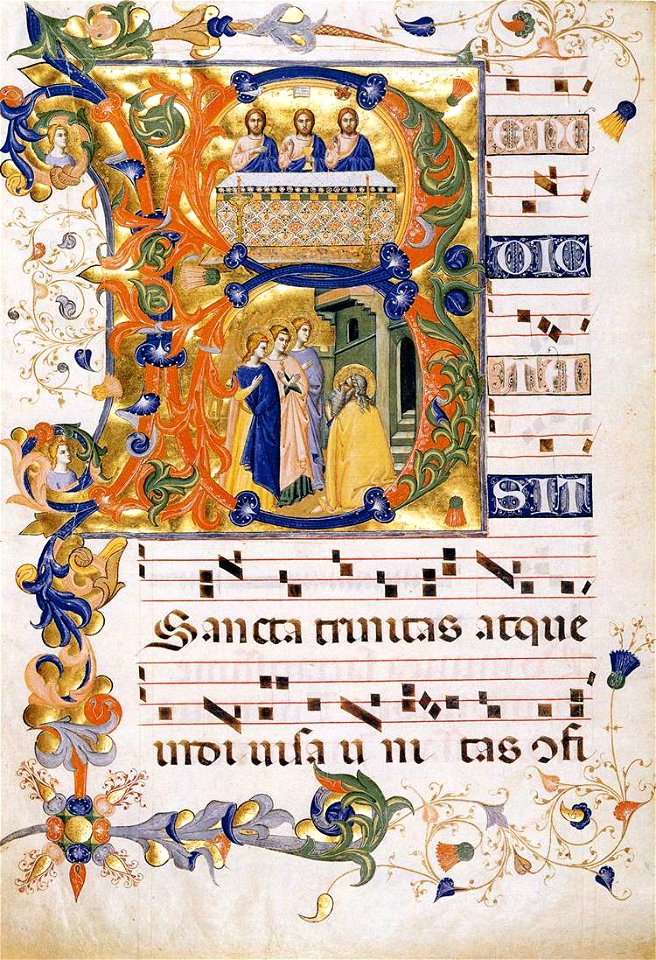 BENE
DIC
TA
SIT
Sancta trinitas atque
indivisa u ni tas ꝯfi